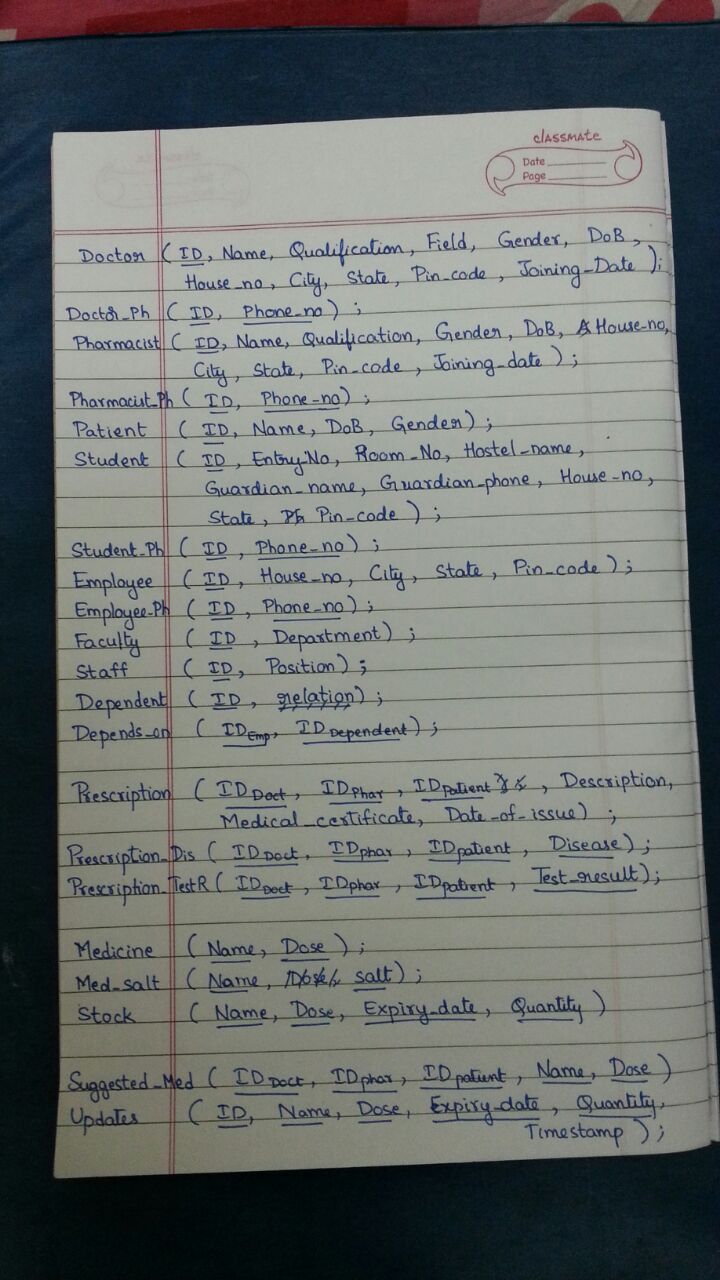 classmate
Date
Page
Doctor (ID, Name, Qualification, Field, Gender, DoB,
House_no, City, State, Pin_code, Joining_Date);
Doctor_Ph (ID, Phone_no);
Pharmacist (ID, Name, Qualification, Gender, DoB, House_no,
City, State, Pin_code, Joining_date);
Pharmacist_Ph (ID, Phone_no);
Patient (ID, Name, DoB, Gender);
Student (ID, Entry_No, Room_No, Hostel_name,
Guardian_name, Guardian_phone, House_no,
State, Pin_code);
Student_Ph (ID, Phone_no);
Employee (ID, House_no, City, State, Pin_code);
Employee_Ph (ID, Phone_no);
Faculty (ID, Department);
Staff (ID, Position);
Dependent (ID, relation);
Depends_on (ID Emp, ID Dependent);
Prescription (ID Doct, ID Phar, ID Patient, Description,
Medical_certificate, Date_of_issue);
Prescription_Dis (ID Doct, ID phar, ID patient, Disease);
Prescription_TestR (ID Doct, ID phar, ID patient, Test_result);
Medicine (Name, Dose);
Med_salt (Name, salt);
Stock (Name, Dose, Expiry_date, Quantity)
Suggested_Med (ID Doct, ID phar, ID patient, Name, Dose)
Updates (ID, Name, Dose, Expiry_date, Quantity,
Timestamp);